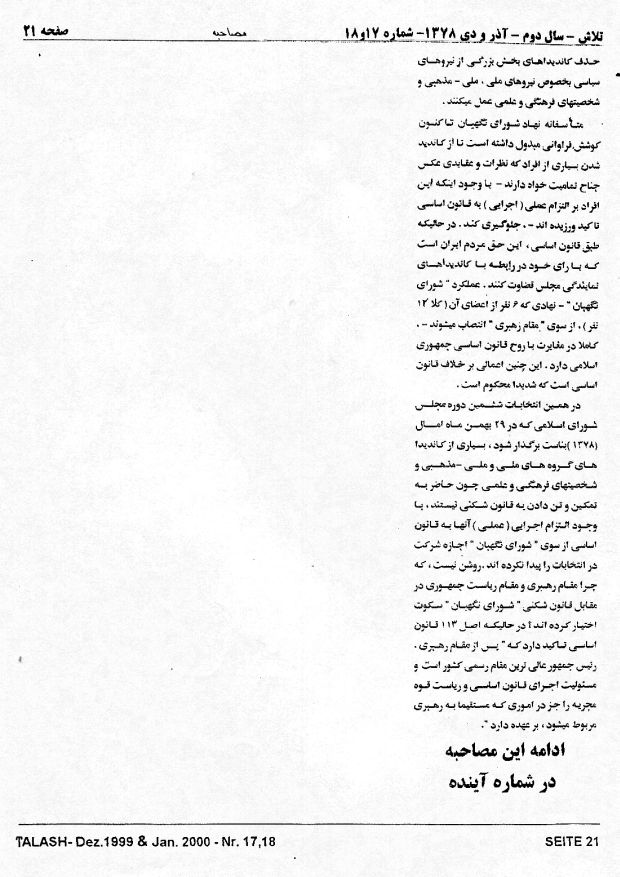 تلاش - سال دوم - آذر و دی ۱۳۷۸- شماره ۱۷و۱۸
مصاحبه
صفحه ۲۱
حذف کاندیداهای بخش بزرگی از نیروهای
سیاسی بخصوص نیروهای ملی ، ملی - مذهبی و
شخصیتهای فرهنگی و علمی عمل میکنند .
متأسفانه نهاد شورای نگهبان تاکنون
کوشش فراوانی مبذول داشته است تا از کاندید
شدن بسیاری از افراد که نظرات و عقایدی عکس
جناح تمامیت خواه دارند - با وجود اینکه این
افراد بر التزام عملی ( اجرایی ) به قانون اساسی
تاکید ورزیده اند - ، جلوگیری کند . در حالیکه
طبق قانون اساسی ، این حق مردم ایران است
که با رای خود در رابطه با کاندیداهای
نمایندگی مجلس قضاوت کنند . عملکرد " شورای
نگهبان " - نهادی که ۶ نفر از اعضای آن ( کلا ۱۲
نفر ) ، از سوی " مقام رهبری " انتصاب میشوند - ،
کاملا در مغایرت با روح قانون اساسی جمهوری
اسلامی دارد . این چنین اعمالی بر خلاف قانون
اساسی است که شدیدا محکوم است .
در همین انتخابات ششمین دوره مجلس
شورای اسلامی که در ۲۹ بهمن ماه امسال
(۱۳۷۸ )بناست برگذار شود ، بسیاری از کاندیدا
های گروه های ملی و ملی -مذهبی و
شخصیتهای فرهنگی و علمی چون حاضر به
تمکین و تن دادن به قانون شکنی نیستند ، با
وجود التزام اجرایی ( عملی ) آنها به قانون
اساسی از سوی " شورای نگهبان " اجازه شرکت
در انتخابات را پیدا نکرده اند .روشن نیست ، که
چرا مقام رهبری و مقام ریاست جمهوری در
مقابل قانون شکنی " شورای نگهبان " سکوت
اختیار کرده اند؟ در حالیکه اصل ۱۱۳ قانون
اساسی تاکید دارد که " پس از مقام رهبری ،
رئیس جمهور عالی ترین مقام رسمی کشور است و
مسئولیت اجرای قانون اساسی و ریاست قوه
مجریه را جز در اموری که مستقیما به رهبری
مربوط میشود ، بر عهده دارد ".
ادامه این مصاحبه
در شماره آینده
TALASH- Dez.1999 & Jan. 2000 - Nr. 17,18
SEITE 21